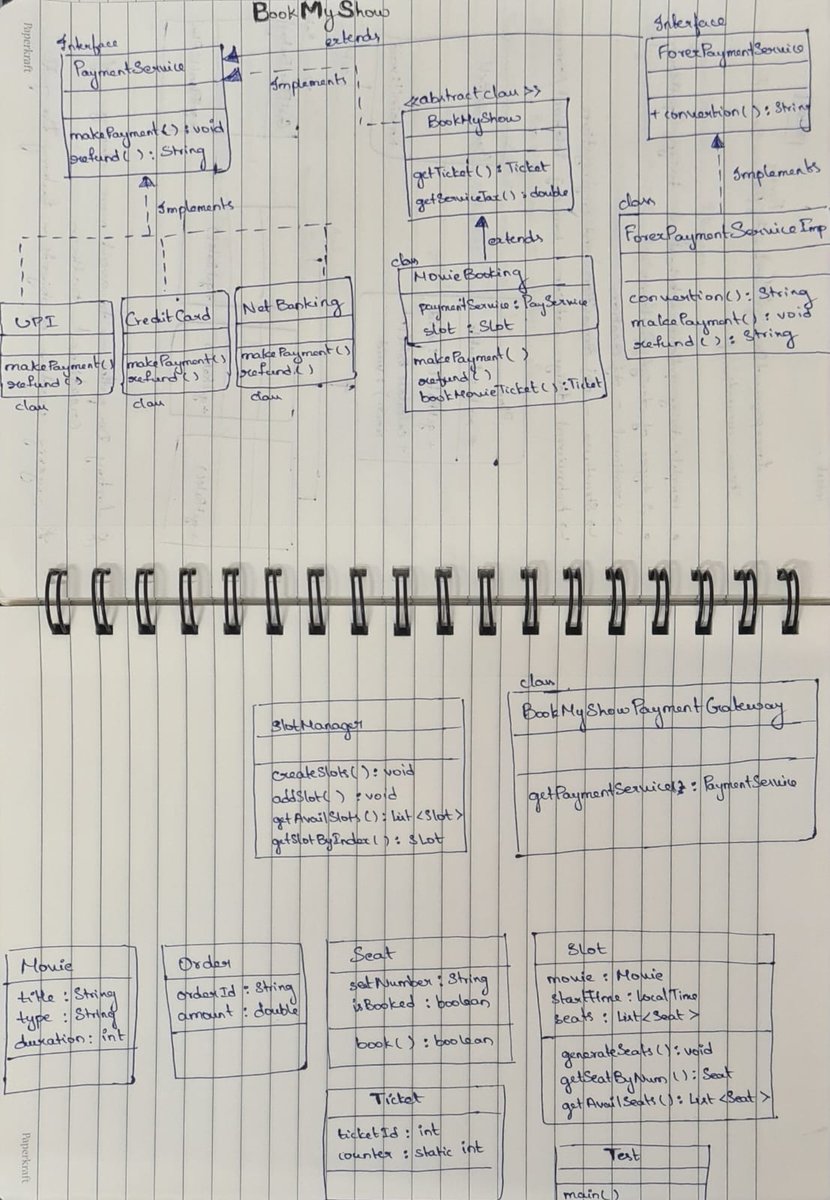 BookMyShow
Paperkraft
Interface
PaymentService
makePayment() : void
refund() : String
extends
Implements
<<abstract class>>
BookMyShow
getTicket() : Ticket
getServiceTax() : double
Interface
ForexPaymentService
+ convertion() : String
Implements
Implements
extends
class
ForexPaymentServiceImp
convertion() : String
makePayment() : void
refund() : String
class
MovieBooking
paymentService : PayService
slot : Slot
makePayment()
refund()
bookMovieTicket() : Ticket
UPI
makePayment()
refund()
class
CreditCard
makePayment()
refund()
class
NetBanking
makePayment()
refund()
class
SlotManager
createSlots() : void
addSlot() : void
getAvailSlots() : List<Slot>
getSlotByIndex() : Slot
class
BookMyShowPaymentGateway
getPaymentService() : PaymentService
Movie
title : String
type : String
duration : int
Order
orderId : String
amount : double
Seat
seatNumber : String
isBooked : boolean
book() : boolean
Slot
movie : Movie
startTime : LocalTime
seats : List<Seat>
generateSeats() : void
getSeatByNum() : Seat
getAvailSeats() : List<Seat>
Ticket
ticketId : int
counter : static int
Test
main()
Paperkraft